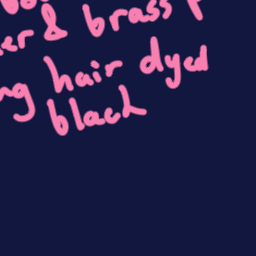 er & brass p
ng hair dyed
black